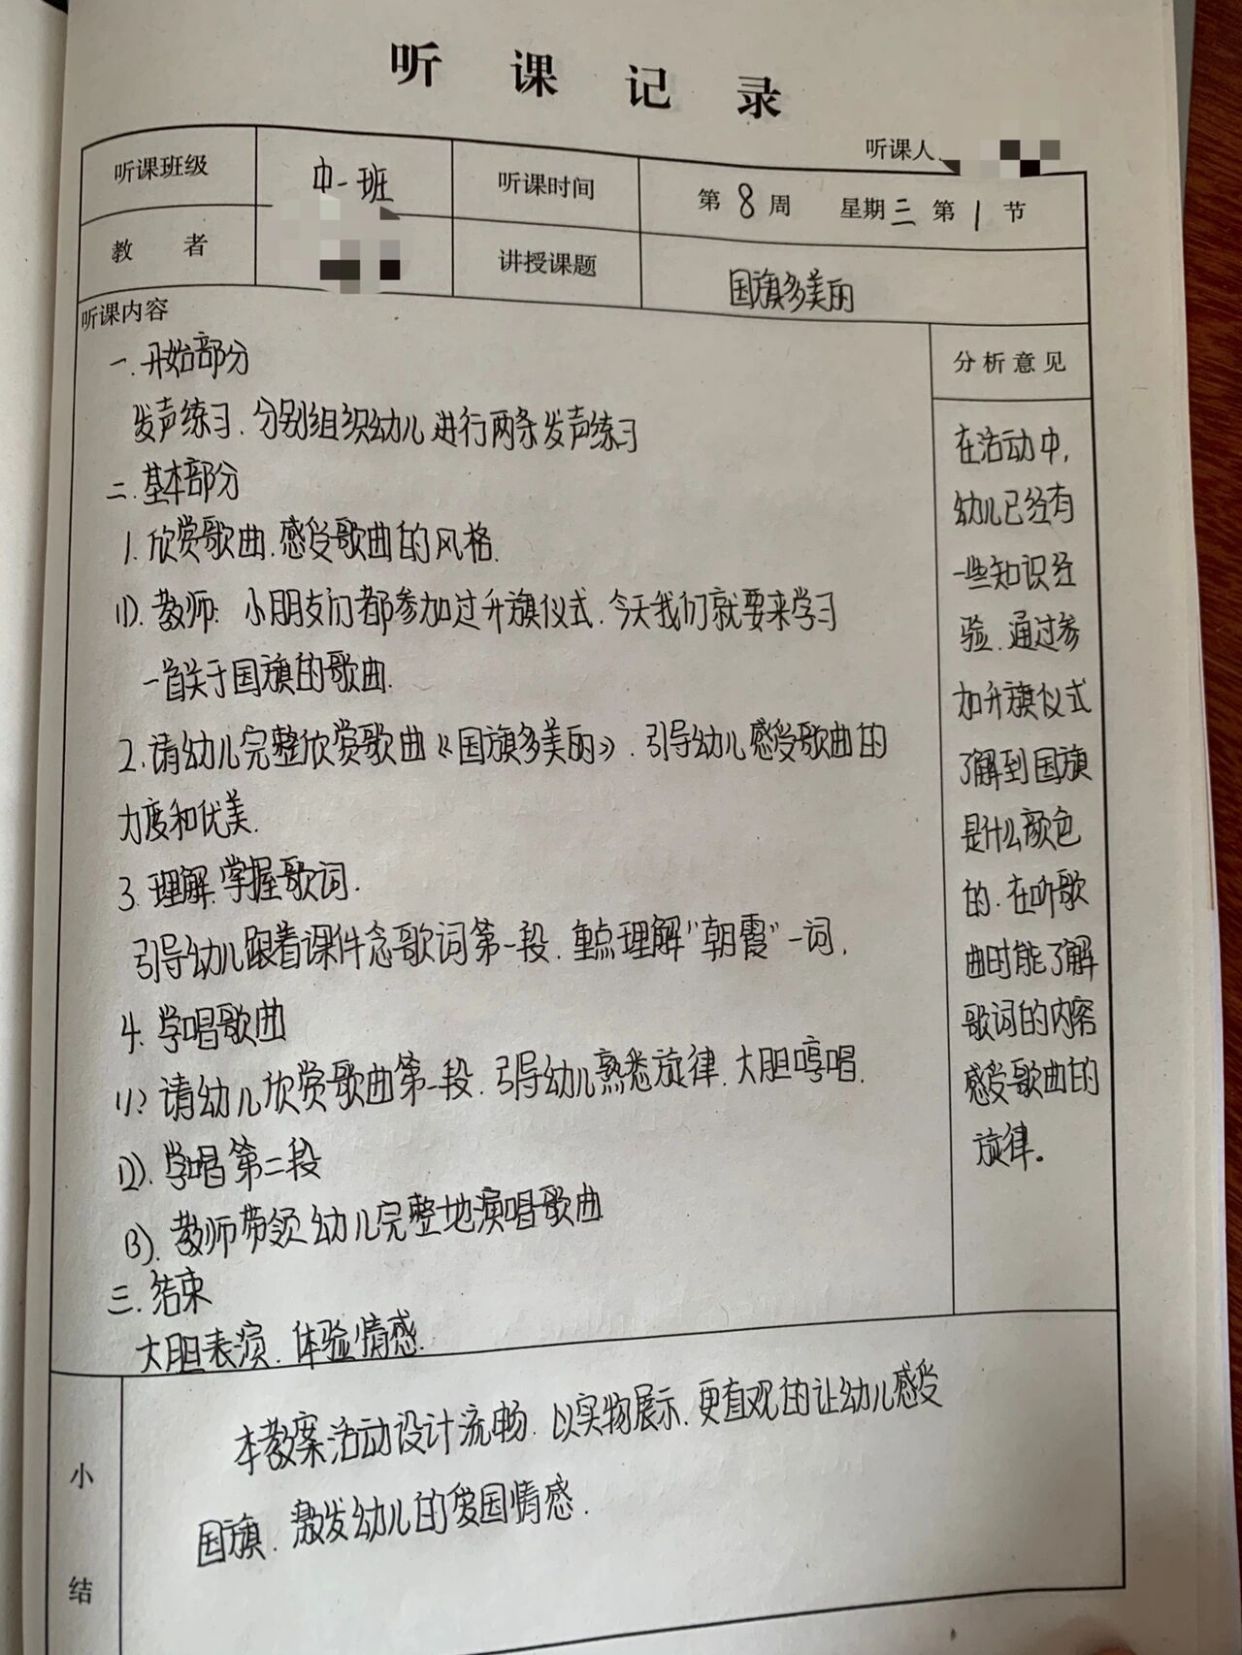 听课记录
听课人
听课班级 中一班 听课时间 第8周 星期三 第1节
教者 讲授课题 国旗多美丽
听课内容
一.开始部分
发声练习.分别组织幼儿进行两条发声练习
二.基本部分
1.欣赏歌曲.感受歌曲的风格.
(1).教师:小朋友们都参加过升旗仪式.今天我们就要来学习
一首关于国旗的歌曲.
2.请幼儿完整欣赏歌曲《国旗多美丽》.引导幼儿感受歌曲的
力度和优美.
3.理解.掌握歌词.
引导幼儿跟着课件念歌词第一段.重点理解"朝霞"一词,
4.学唱歌曲
(1)请幼儿欣赏歌曲第一段.引导幼儿熟悉旋律.大胆哼唱.
(2).学唱第二段
(3).教师带领幼儿完整地演唱歌曲
三.结束
大胆表演.体验情感.
分析意见
在活动中,
幼儿已经有
一些知识经
验.通过参
加升旗仪式
了解到国旗
是什么颜色
的.在听歌
曲时能了解
歌词的内容
感受歌曲的
旋律。
小结
本教案活动设计流畅.以实物展示.更直观的让幼儿感受
国旗.激发幼儿的爱国情感.